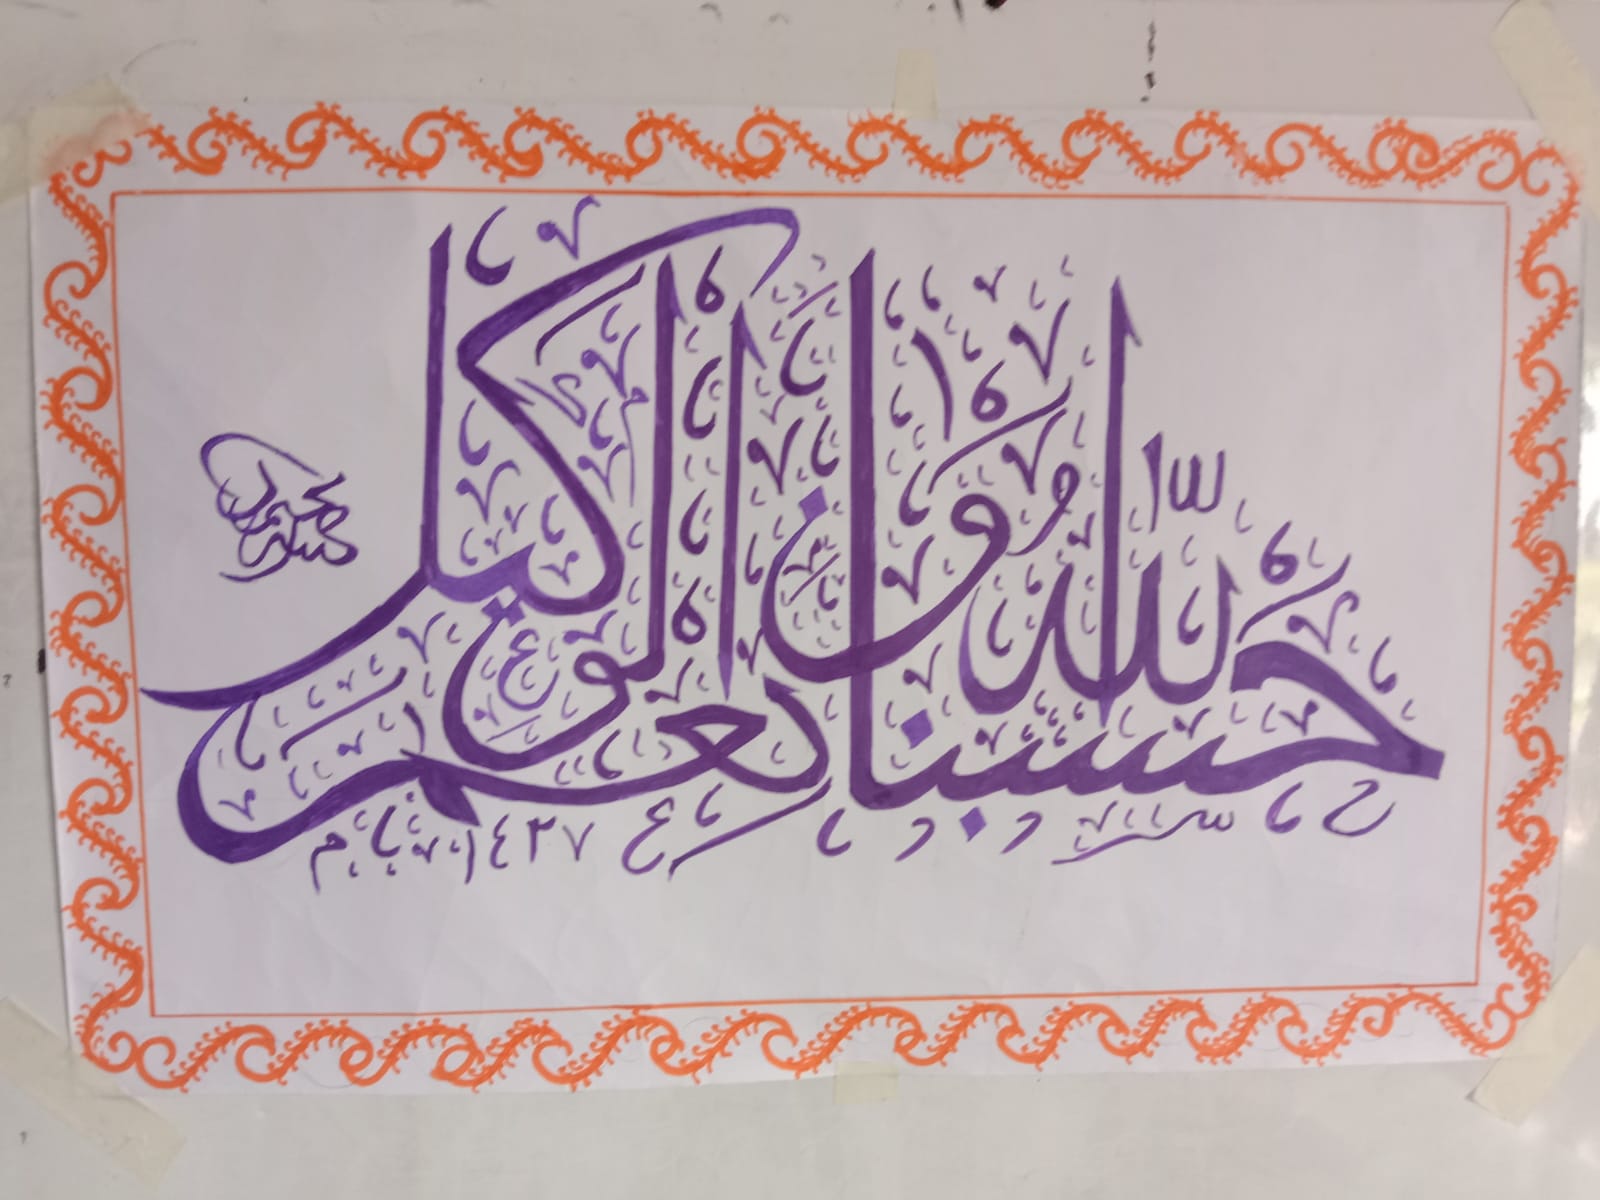 حسبنا الله ونعم الوكيل
١٤٣٧